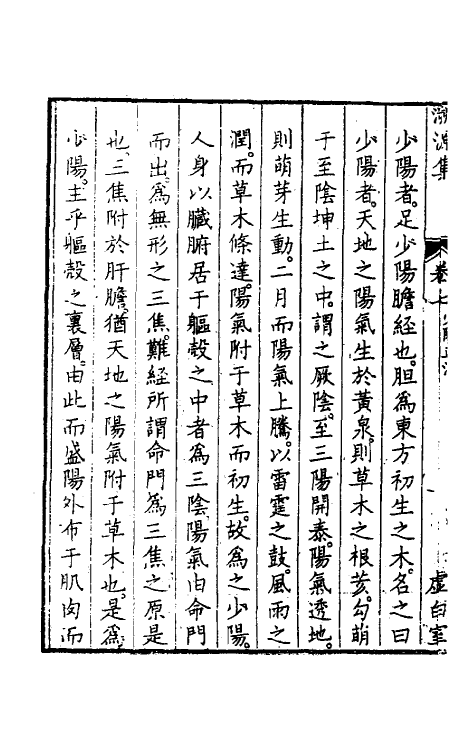 溯源集
卷七
虛白室
少陽者。足少陽膽經也。胆為東方初生之木。名之曰
少陽者。天地之陽氣生於黃泉。則草木之根荄。勾萌
于至陰坤土之中。謂之厥陰。至三陽開泰。陽氣透地。
則萌芽生動。二月而陽氣上騰。以雷霆之鼓。風雨之
潤。而草木條達。陽氣附于草木而初生。故為之少陽。
人身以臟腑居于軀殼之中者為三陰陽氣由命門
而出。為無形之三焦。難經所謂命門為三焦之原是
也。三焦附於肝膽。猶天地之陽氣附于草木也。是為
少陽。主乎軀殼之裏層。由此而盛陽外布于肌肉而